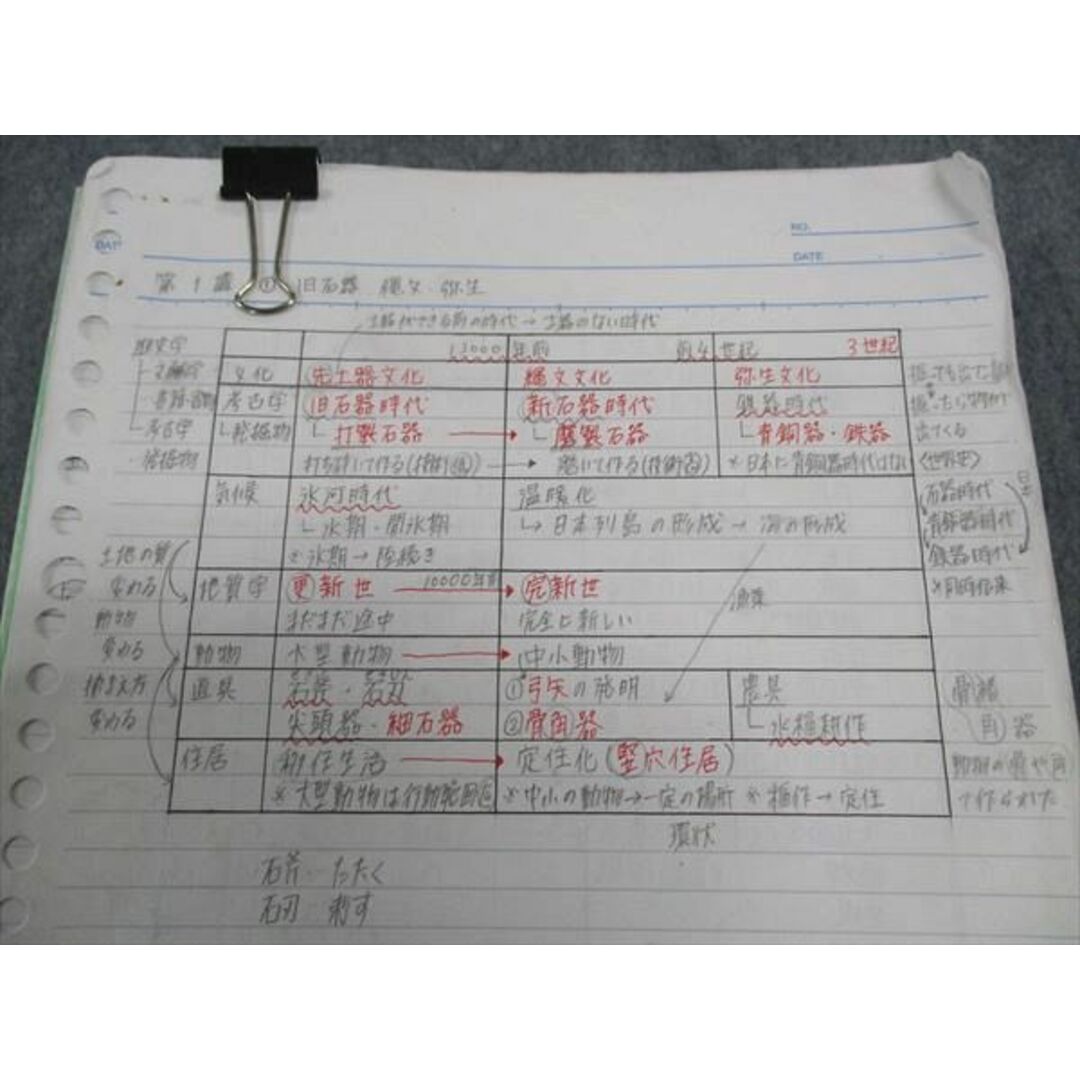 NO.
DATE
第1講 ① 旧石器 縄文・弥生
土器ができる前の時代→土器のない時代
13000年前 前4世紀 3世紀
文化 先土器文化 縄文文化 弥生文化
考古学 旧石器時代 新石器時代 鉄器時代
└発掘物 └打製石器 → └磨製石器 └青銅器・鉄器
打ち砕いて作る(技術低) → 磨いて作る(技術高) ※日本に青銅器時代はない
気候 氷河時代 温暖化
└氷期・間氷期 ↳日本列島の形成→海の形成
※氷期→陸続き
地質学 更新世 10000年前 → 完新世
まだまだ途中 完全に新しい
漁業
動物 大型動物 → 中小動物
道具 石斧・石刃 ①弓矢の発明 農具
尖頭器・細石器 ②骨角器 └水稲耕作
住居 移住生活 → 定住化(竪穴住居)
※大型動物は行動範囲広 ※中小の動物→一定の場所 ※稲作→定住
環状
石斧…たたく
石刃…刺す
歴史学
文献学
考古学
・発掘物
土地の質
変わる
動物
変わる
捕まえ方
変わる
出てくる
〈世界史〉
石器時代
青銅器時代
鉄器時代
日本
※同時伝来
骨
角 器
動物の骨や角
で作られた